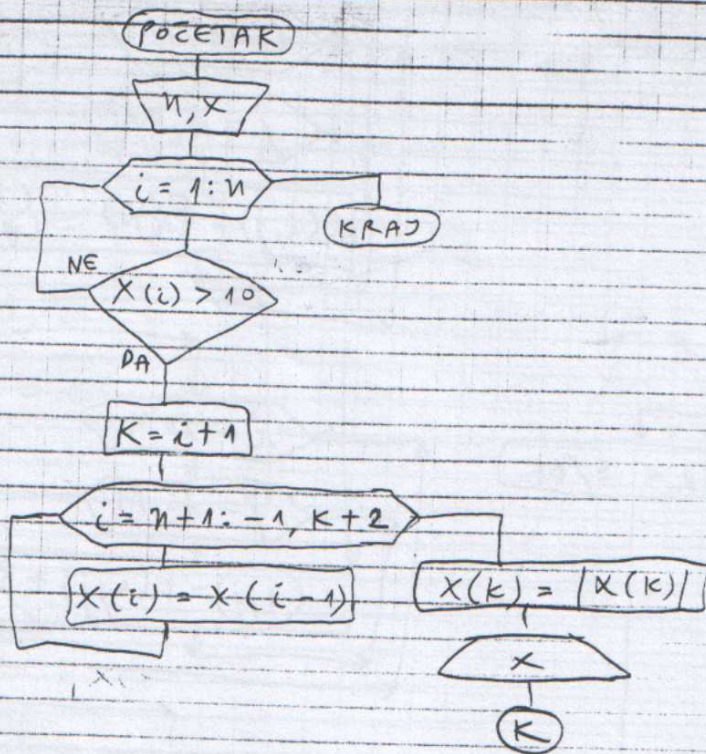 POČETAK
n, x
i = 1 : n
KRAJ
NE
X(i) > 10
DA
K = i + 1
i = n + 1 : -1, K + 2
X(i) = X(i-1)
X(k) = |X(k)|
X
K